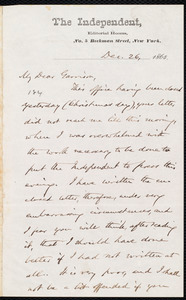 The Independent,
Editorial Rooms,
No. 5 Beekman Street, New York.
Dec. 26, 186
My Dear Garrison,
This office having been closed
yesterday (Christmas day), your letter
did not reach me till this morning,
when I was overwhelmed with
the work necessary to be done to
put the Independent to press this
evening. I have written the en-
closed letter, therefore, under very
embarrassing circumstances, and
I fear you will think, after reading
it, that I should have done
better if I had not written at
all. It is very poor, and I shall
not be a bit offended if you